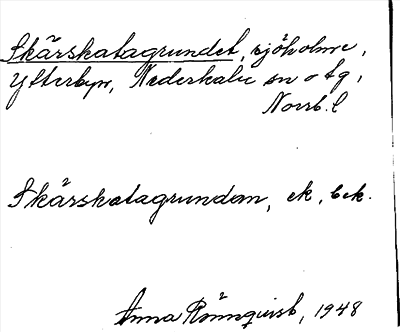 Skärskatagrundet, sjöholme,
Ytterbyn, Nederkalix sn o tg,
Norrb. l
Skärskatagrunden, ek, bek.
Anna Rönnqvist, 1948